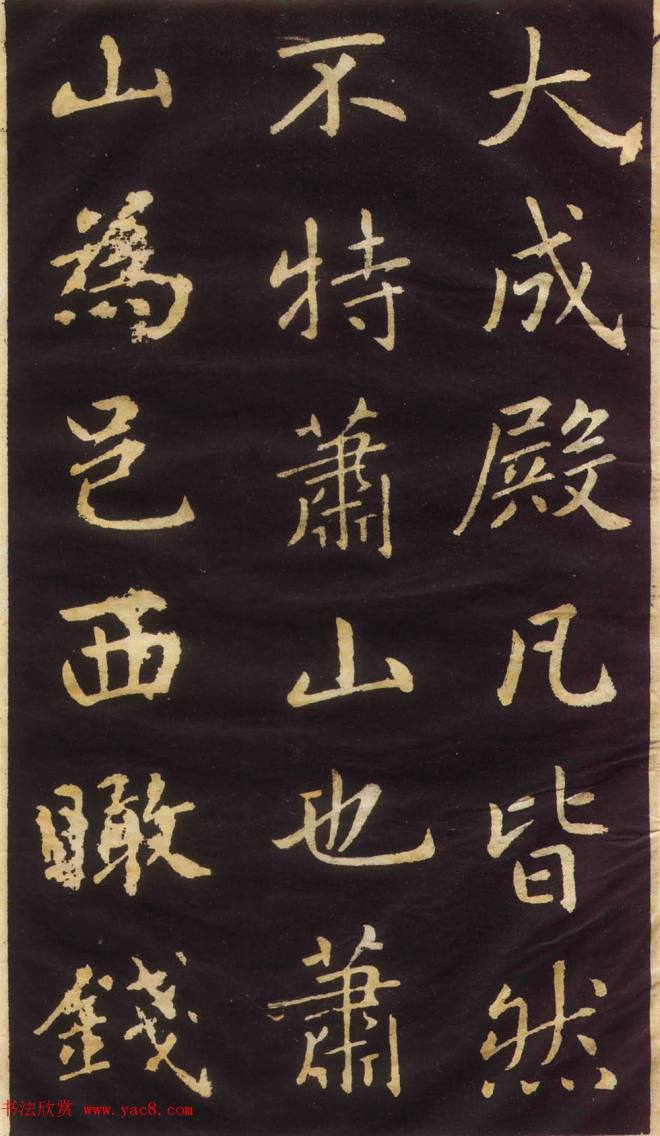 大成殿凡皆然
不特蕭山也蕭
山為邑西瞰錢
书法欣赏 www.yac8.com